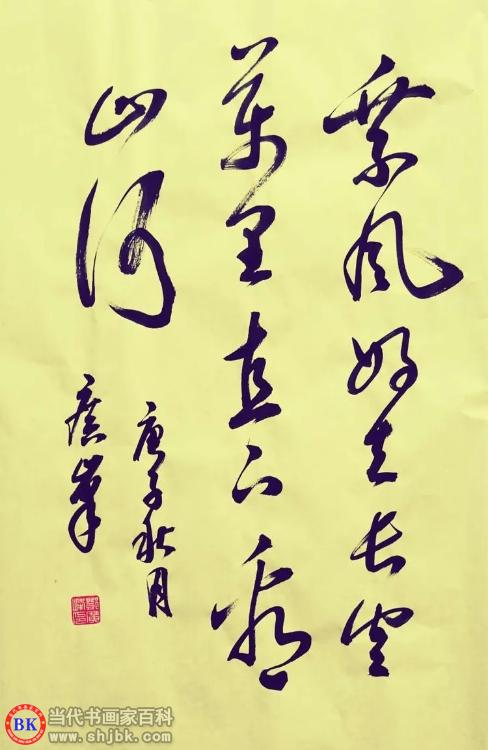 乘风好去长空
万里直下看
山河
庚子秋月
广峰
BK
当代书画家百科
www.shjbk.com